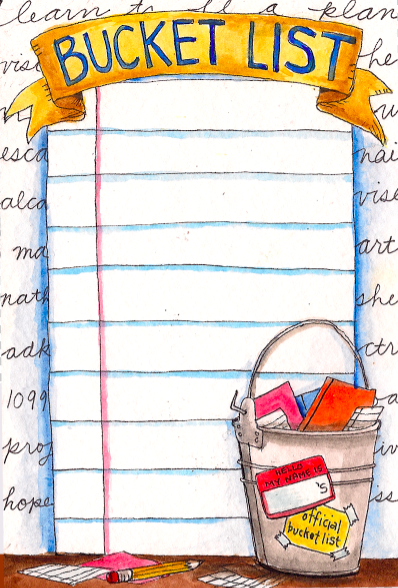 learn to a plan
BUCKET LIST
visi he
esca nai
alca vise
ma art
nath she
adk ctr
1099
proj iv
hope ss
HELLO
MY NAME IS
'S
official
bucket list